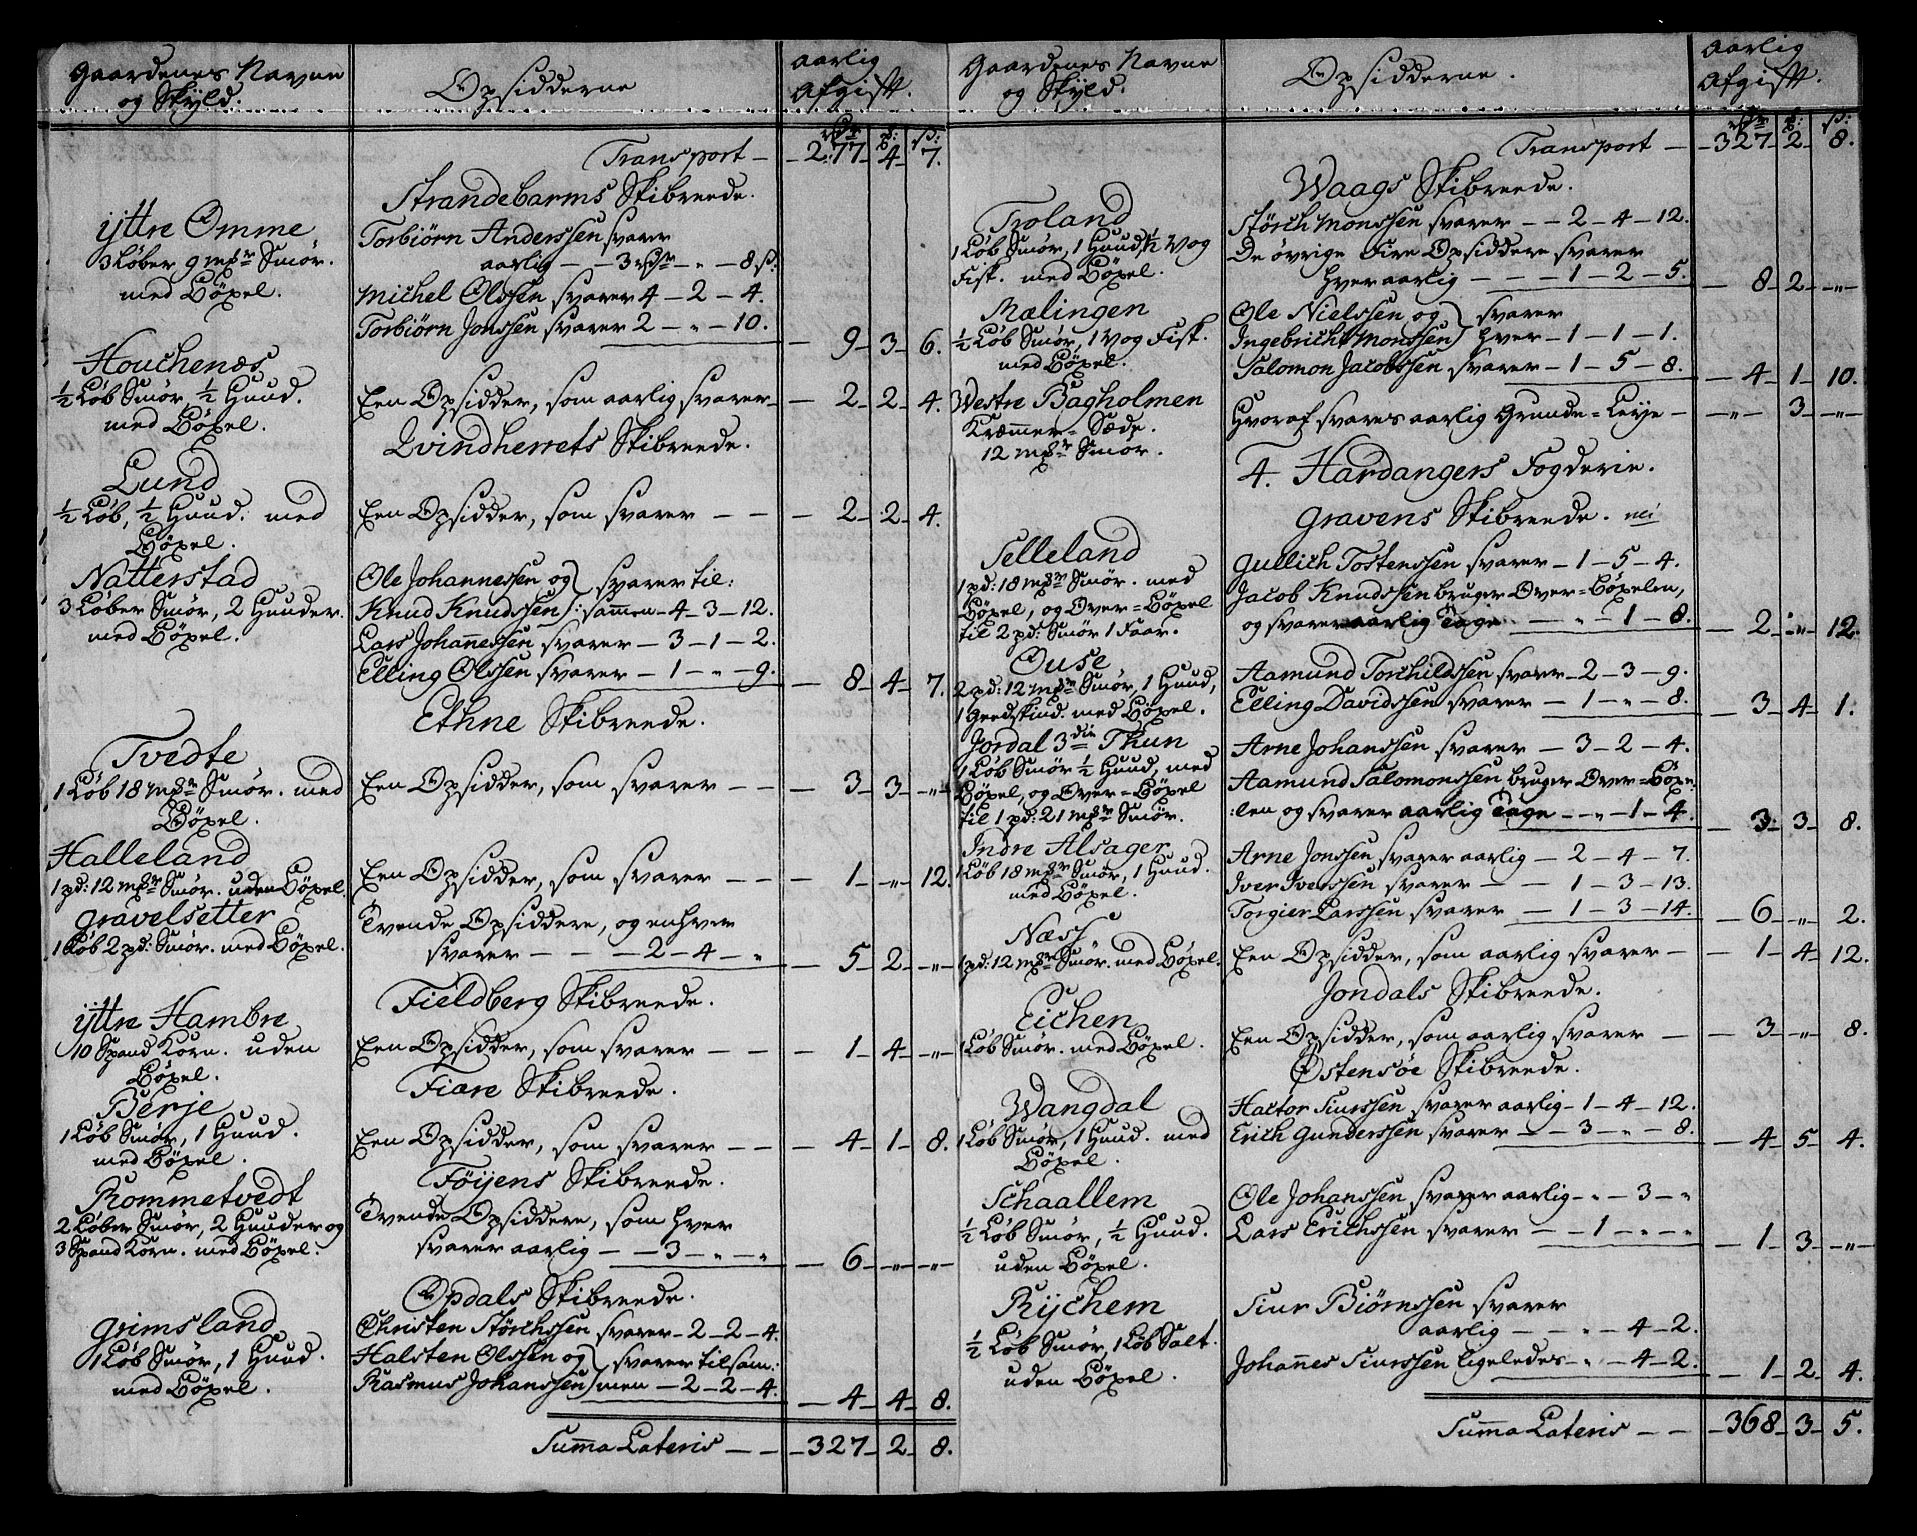 Gaardenes Navne
og Skyld.
Opsidderne
aarlig
Afgift.
rdr. ß:
Transport — 277 – 4 – 7.
Strandebarms Skibreede.
ÿttre Omme
3 Løber 9 mkr Smør.
med Böxel.
Torbiörn Anderssen svarer
aarlig — — 3 rdr – „ – 8 ß:
Michel Olssen svarer 4 – 2 – 4.
Torbiörn Jonssen svarer 2 – „ – 10.
— 9 – 3 – 6.
Houchenæs
½ Löb Smör ½ Huud.
med Böxel.
Een Opsidder, som aarlig svarer — 2 – 2 – 4.
Qvindherrets Skibreede.
Lund
½ Löb, ½ Huud. med
Böxel.
Een Opsidder, som svarer — — — 2 – 2 – 4.
Natterstad
3 Løber Smör, 2 Huuder.
med Böxel.
Ole Johannessen og) svarer til:
Knud Knudssen): sam̄en – 4 – 3 – 12.
Lars Johan̄essen svarer – 3 – 1 – 2.
Elling Olssen svarer – 1 – „ – 9.
— 8 – 4 – 7.
Ethne Skibreede.
Tvedte
1 Löb 18 mkr Smör. med
Böxel.
Een Opsidder, som svarer — — — 3 – 3 – „ –
Halleland
1 pd: 12 mkr Smör. uden Böxel.
Een Opsidder, som svarer — — — 1 – „ – 12.
Gravelsetter
1 Löb 2 pd: Smör. med Böxel.
Tvende Opsiddere, og enhver
svarer — — — 2 – 4 – „
— 5 – 2 – „ –
Fieldberg Skibreede.
ÿttre Hambre
10 Spand Korn. uden
Böxel.
Een Opsidder, som svarer — — — 1 – 4 – „ –
Fiære Skibreede.
Berje
1 Löb Smör, 1 Huud.
med Böxel.
Een Opsidder, som svarer — — — 4 – 1 – 8.
Föÿens Skibreede.
Rommetvedt
2 Løber Smör, 2 Huuder og
3 Spand Korn. med Böxel.
Tvende Opsiddere, som hver
svarer aarlig — — 3 – „ – „
— 6 – „ – „ –
Opdals Skibreede.
Grimsland
1 Löb Smör, 1 Huud.
med Böxel.
Christen Störchssen svarer – 2 – 2 – 4.
Halsten Olssen og) svarer tilsam:
Rasmus Johanssen) men – 2 – 2 – 4.
— 4 – 4 – 8.
Sum̄a Lateris — — 327 – 2 – 8.
Gaardenes Navne
og Skyld.
Opsidderne.
aarlig
Afgift.
rdr. ß:
Transport — 327 – 2 – 8.
Waags Skibreede.
Troland
1 Löb Smör, 1 Huud, ½ Vog
Fisk. med Böxel.
Störch Monssen svarer — — 2 – 4 – 12.
De övrige Fire Opsiddere svarer
hver aarlig — — — 1 – 2 – 5.
— 8 – 2 – „ –
Mælingen
½ Löb Smör, 1 Vog Fisk.
med Böxel.
Ole Nielssen og) svarer
Ingebricht Monssen) hver – 1 – 1 – 1.
Salomon Jacobssen svarer – 1 – 5 – 8.
— 4 – 1 – 10.
Westre Bagholmen
Kræmmer = Sæde.
12 mkr Smör.
Hvoraf svares aarlig Grunde = Leÿe — „ – 3 – „ –
4. Hardangers Fogderie.
Gravens Skibreede. nei
Selleland
1 pd: 18 mkr Smör. med
Böxel, og Over = Böxel
til 2 pd: Smör 1 Faar.
Gullich Tostenssen svarer – 1 – 5 – 4.
Jacob Knudssen bruger Over = Böxelen,
og svarer aarlig Tage — „ – 1 – 8.
— 2 – „ – 12.
Ouse
2 pd: 12 mkr Smör, 1 Huud,
1 Geedskind. med Böxel.
Aamund Torchildssen svarer – 2 – 3 – 9.
Elling Davidssen svarer — 1 – „ – 8.
— 3 – 4 – 1.
Jordal 3die Thun
1 Löb Smör ½ Huud, med
Böxel, og Over = Böxel
til 1 pd: 21 mkr Smör.
Arne Johanssen svarer — 3 – 2 – 4.
Aamund Salomonssen bruger Over = Böxe
:len og svarer aarlig Tage — „ – 1 – 4.
— 3 – 3 – 8.
Indre Alsager
1 Löb 18 mkr Smör, 1 Huud.
med Böxel.
Arne Jonssen svarer aarlig — 2 – 4 – 7.
Iver Iverssen svarer — — 1 – 3 – 13.
Torgier Larssen svarer — 1 – 3 – 14.
— 6 – „ – 2.
Næss
1 pd: 12 mkr Smör. med Böxel.
Een Opsidder, som aarlig svarer — — 1 – 4 – 12.
Jondals Skibreede.
Eichen
1 Löb Smör. med Böxel.
Een Opsidder, som aarlig svarer — — 3 – „ – 8.
Östensöe Skibreede.
Wangdal
1 Löb Smör, 1 Huud. med
Böxel.
Hactor Siurssen svarer aarlig – 1 – 4 – 12.
Erich Gunderssen svarer — 3 – „ – 8.
— 4 – 5 – 4.
Schaallem
½ Löb Smör, ½ Huud.
uden Böxel.
Ole Johanssen svarer aarlig – „ – 3 – „
Lars Erichssen svarer — — 1 – „ – „
— 1 – 3 – „ –
Rÿchem
½ Löb Smör, 1 Löb Salt.
uden Böxel.
Siur Biörnssen svarer
aarlig — — „ – 4 – 2.
Johan̄es Siurssen ligeledes – „ – 4 – 2.
— 1 – 2 – 4.
Sum̄a Lateris — — 368 – 3 – 5.